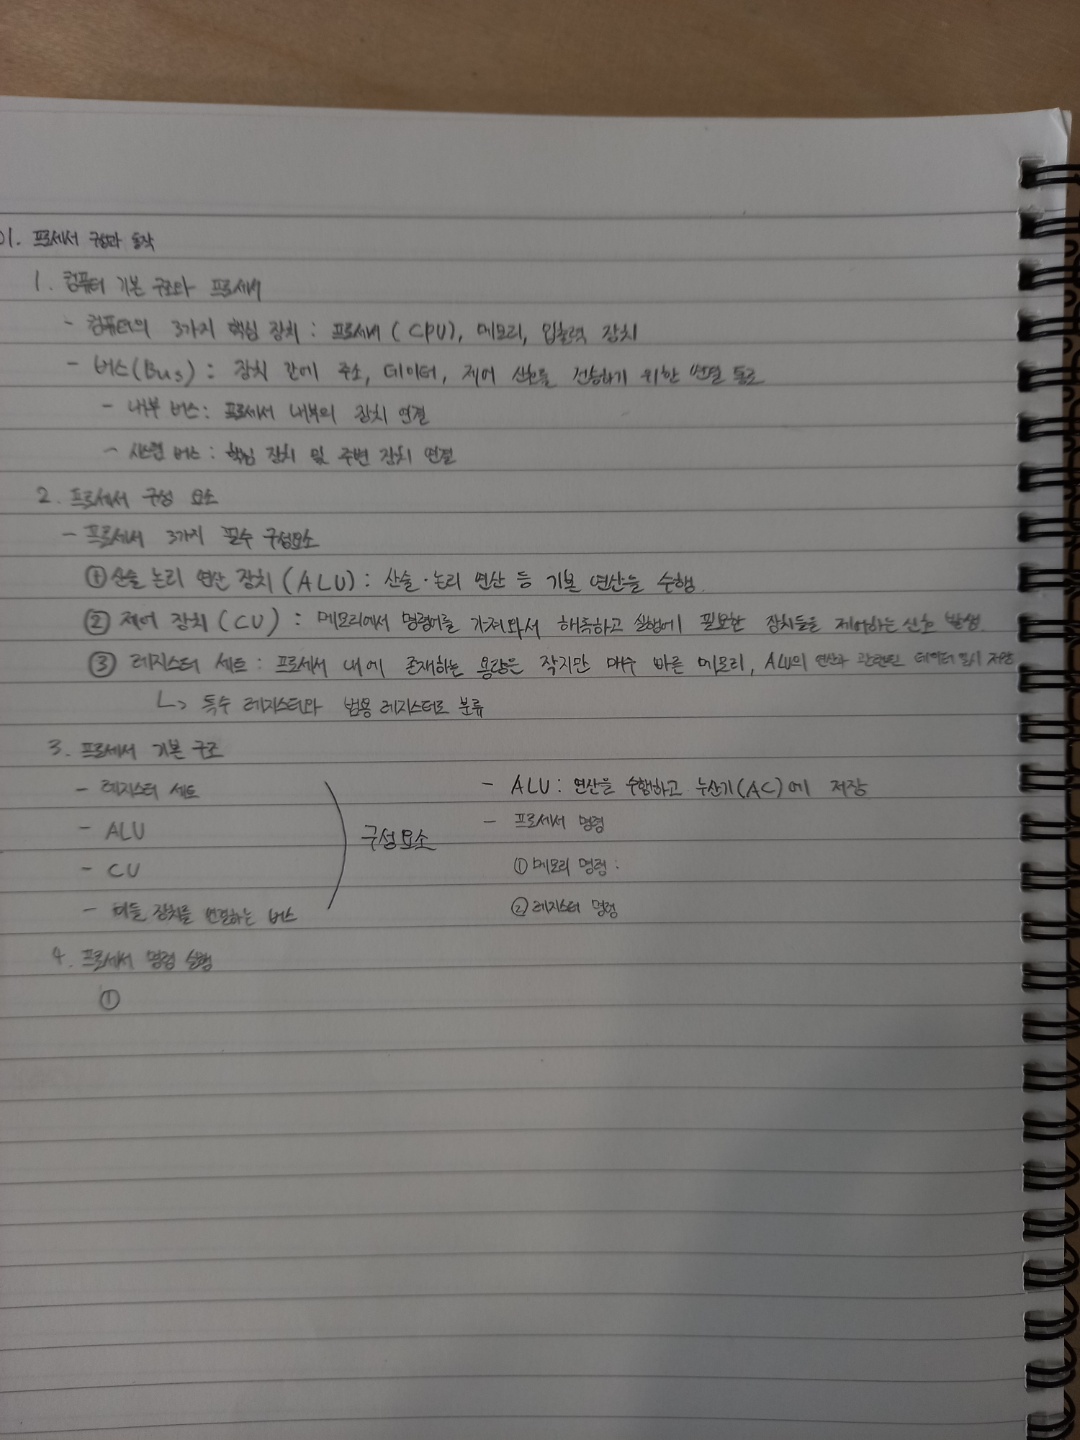 01. 프로세서 구성과 동작
1. 컴퓨터 기본 구조와 프로세서
- 컴퓨터의 3가지 핵심 장치 : 프로세서 (CPU), 메모리, 입출력 장치
- 버스(Bus) : 장치 간에 주소, 데이터, 제어 신호를 전송하기 위한 연결 통로
- 내부 버스 : 프로세서 내부의 장치 연결
- 시스템 버스 : 핵심 장치 및 주변 장치 연결
2. 프로세서 구성 요소
- 프로세서 3가지 필수 구성요소
① 산술 논리 연산 장치 (ALU) : 산술·논리 연산 등 기본 연산을 수행.
② 제어 장치 (CU) : 메모리에서 명령어를 가져와서 해독하고 실행에 필요한 장치들을 제어하는 신호 발생.
③ 레지스터 세트 : 프로세서 내에 존재하는 용량은 작지만 매우 빠른 메모리, ALU의 연산과 관련된 데이터 일시 저장
↳ 특수 레지스터와 범용 레지스터로 분류
3. 프로세서 기본 구조
- 레지스터 세트
- ALU
- CU
- 이들 장치를 연결하는 버스
구성요소
- ALU : 연산을 수행하고 누산기(AC)에 저장
- 프로세서 명령
① 메모리 명령 :
② 레지스터 명령
4. 프로세서 명령 실행
①